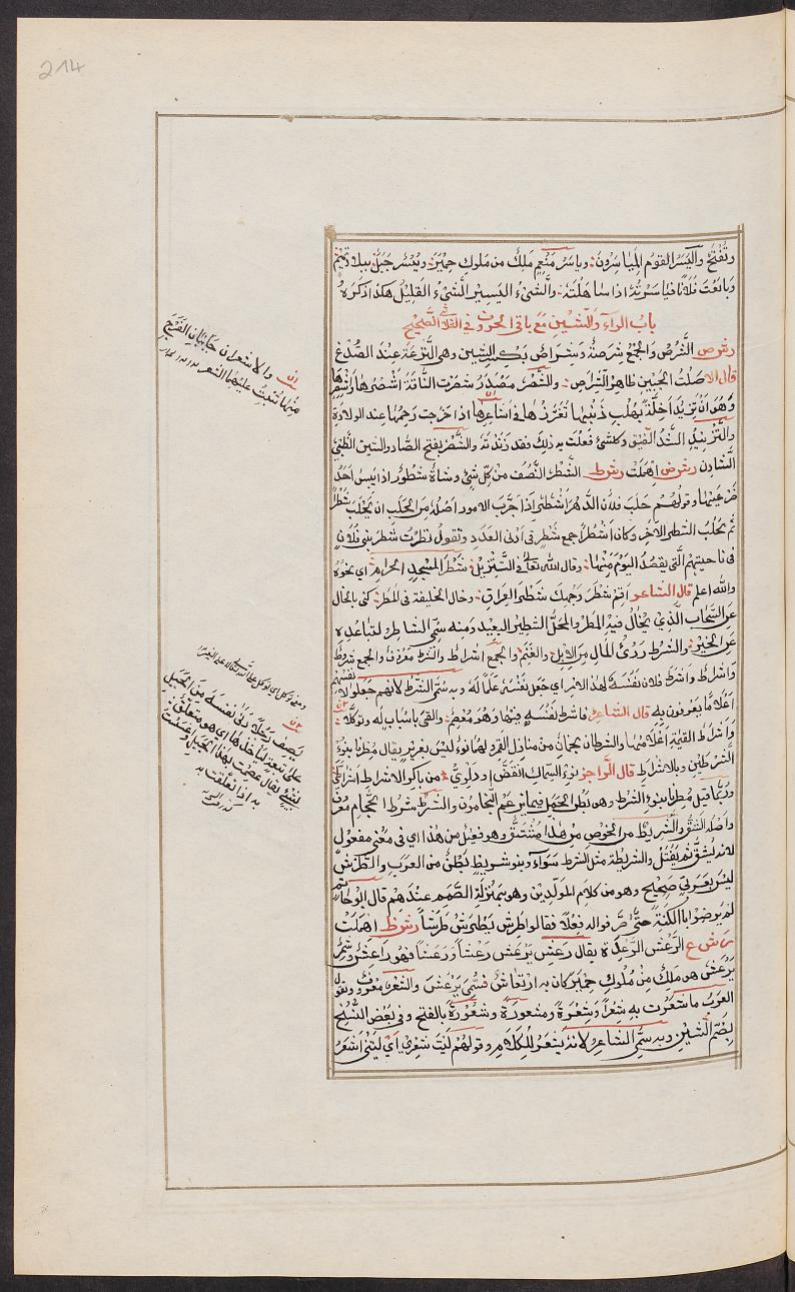 214
وتُفتح واليَسَر القوم المياسرون وياسر مُنعِم ملك من ملوك حِميَر ويُسُر جبل ببلاد تيم
ويايعت فلانا فياسرته اذا ساهلته والشيء اليسير الشيء القليل هكذا ذكره
باب الراء والشين مع باقي الحروف في الثلاثي الصحيح
رش ص الشرص والجمع شرصة وشراص بكسر الشين وهي النزعة عند الصدغ
قال الا صلت الجبين ظاهر الشراص والشصر مصدر شصرت الناقة اشصرها واشصرها
وهو ان تزند اخلة بهلب ذنبها تغرز ها في اشاعرها اذا خرجت رحمها عند الولادة
والتزنيد الشد الضيق وكل شيء فعلت به ذلك فقد زندته والشصر بفتح الصاد والشين الظبي
الشادن رش ض اهملت رش ط الشطر النصف من كل شيء وشاة شطور اذا يبس احد
ضرعيها وقولهم حلب فلان الدهر اشطره اذا جرب الامور اصله من الحلب ان يحلب شطرا
ثم يحلب الشطر الآخر وكان اشطرا جمع شطر في ادنى العدد وتقول نظرت شطر بني فلان
في ناحيتهم التي يقصد اليهم منها وقال الله تعالى في التنزيل شطر المسجد الحرام اي نحوه
والله اعلم قال الشاعر اقم شطر وجهك شطر العراق وخال الخليفة في المطر كنى بالخال
عن السحاب الذي يخال فيه المطر والمحل الشطير البعيد ومنه سمي الشاطر لتباعده
عن الخير والشرط ردئ المال من الابل والغنم والجمع اشراط والشرط معروف والجمع شروط
واشراط واشرط فلان نفسه لهذا الامر اي جعل نفسه علما له وبه سمي الشرط لانهم جعلوا لانفسهم
اعلاما يعرفون به قال الشاعر فاشرط نفسه فيها وهو معصم والقى باسباب له وتوكلا
واشراط القيمة اعلامها والشرطان نجمان من منازل القمر لهما نوء ليس بغزير يقال مطرنا بنوء
الشرطين وبالاشراط قال الراجز نوء السماك انقض او دلوي من باكر الاشراط اشراطي
وربما قيل مطرنا بنوء الشرط وهو بطن الحمل فيما يزعم المنجمون والشرط شرط الحجام معروف
واصله الشق والشريط من الخوص من هذا مشتق وهو فعيل من هذا اي في معنى مفعول
لانه يشق ثم يفتل والشريطة مثل الشرط سواء وبنو شريط بطن من العرب والطرش
ليس بعربي صحيح وهو من كلام المولدين وهو بمنزلة الصمم عندهم قال ابو حاتم
لم يرضوا باللكنة حتى صرفوا له فعلا فقالوا طرش يطرش طرشا رش ظ اهملت
رش ع الرعش الرعدة يقال رعش يرعش رعشا ورعشا فهو راعش وشمر
يرعش هو ملك من ملوك حمير كان به ارتعاش فسمي يرعش والشعر معروف وتقول
العرب ما شعرت به شعرا وشعرة ومشعورة وشعورة بالفتح وفي بعض النسخ
بضم الشين وبه سمي الشاعر لانه يشعر للكلام وقولهم ليت شعري اي ليتني اشعر
والاشعران جانبان الفرج
منها تنبت عليها الشعر
يصف رجلا دلى نفسه من الحبل
على نبعة ليأخذها اي هو متعلق